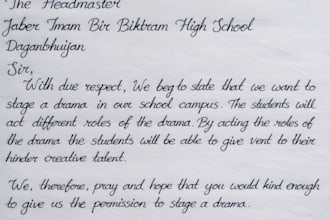 The Headmaster
Jaber Imam Bir Biktram High School
Daganbhuiyan
Sir,
With due respect, We beg to state that we want to
stage a drama in our school campus. The students will
act different roles of the drama. By acting the roles of
the drama the students will be able to give vent to their
hinder creative talent.
We, therefore, pray and hope that you would kind enough
to give us the permission to stage a drama.